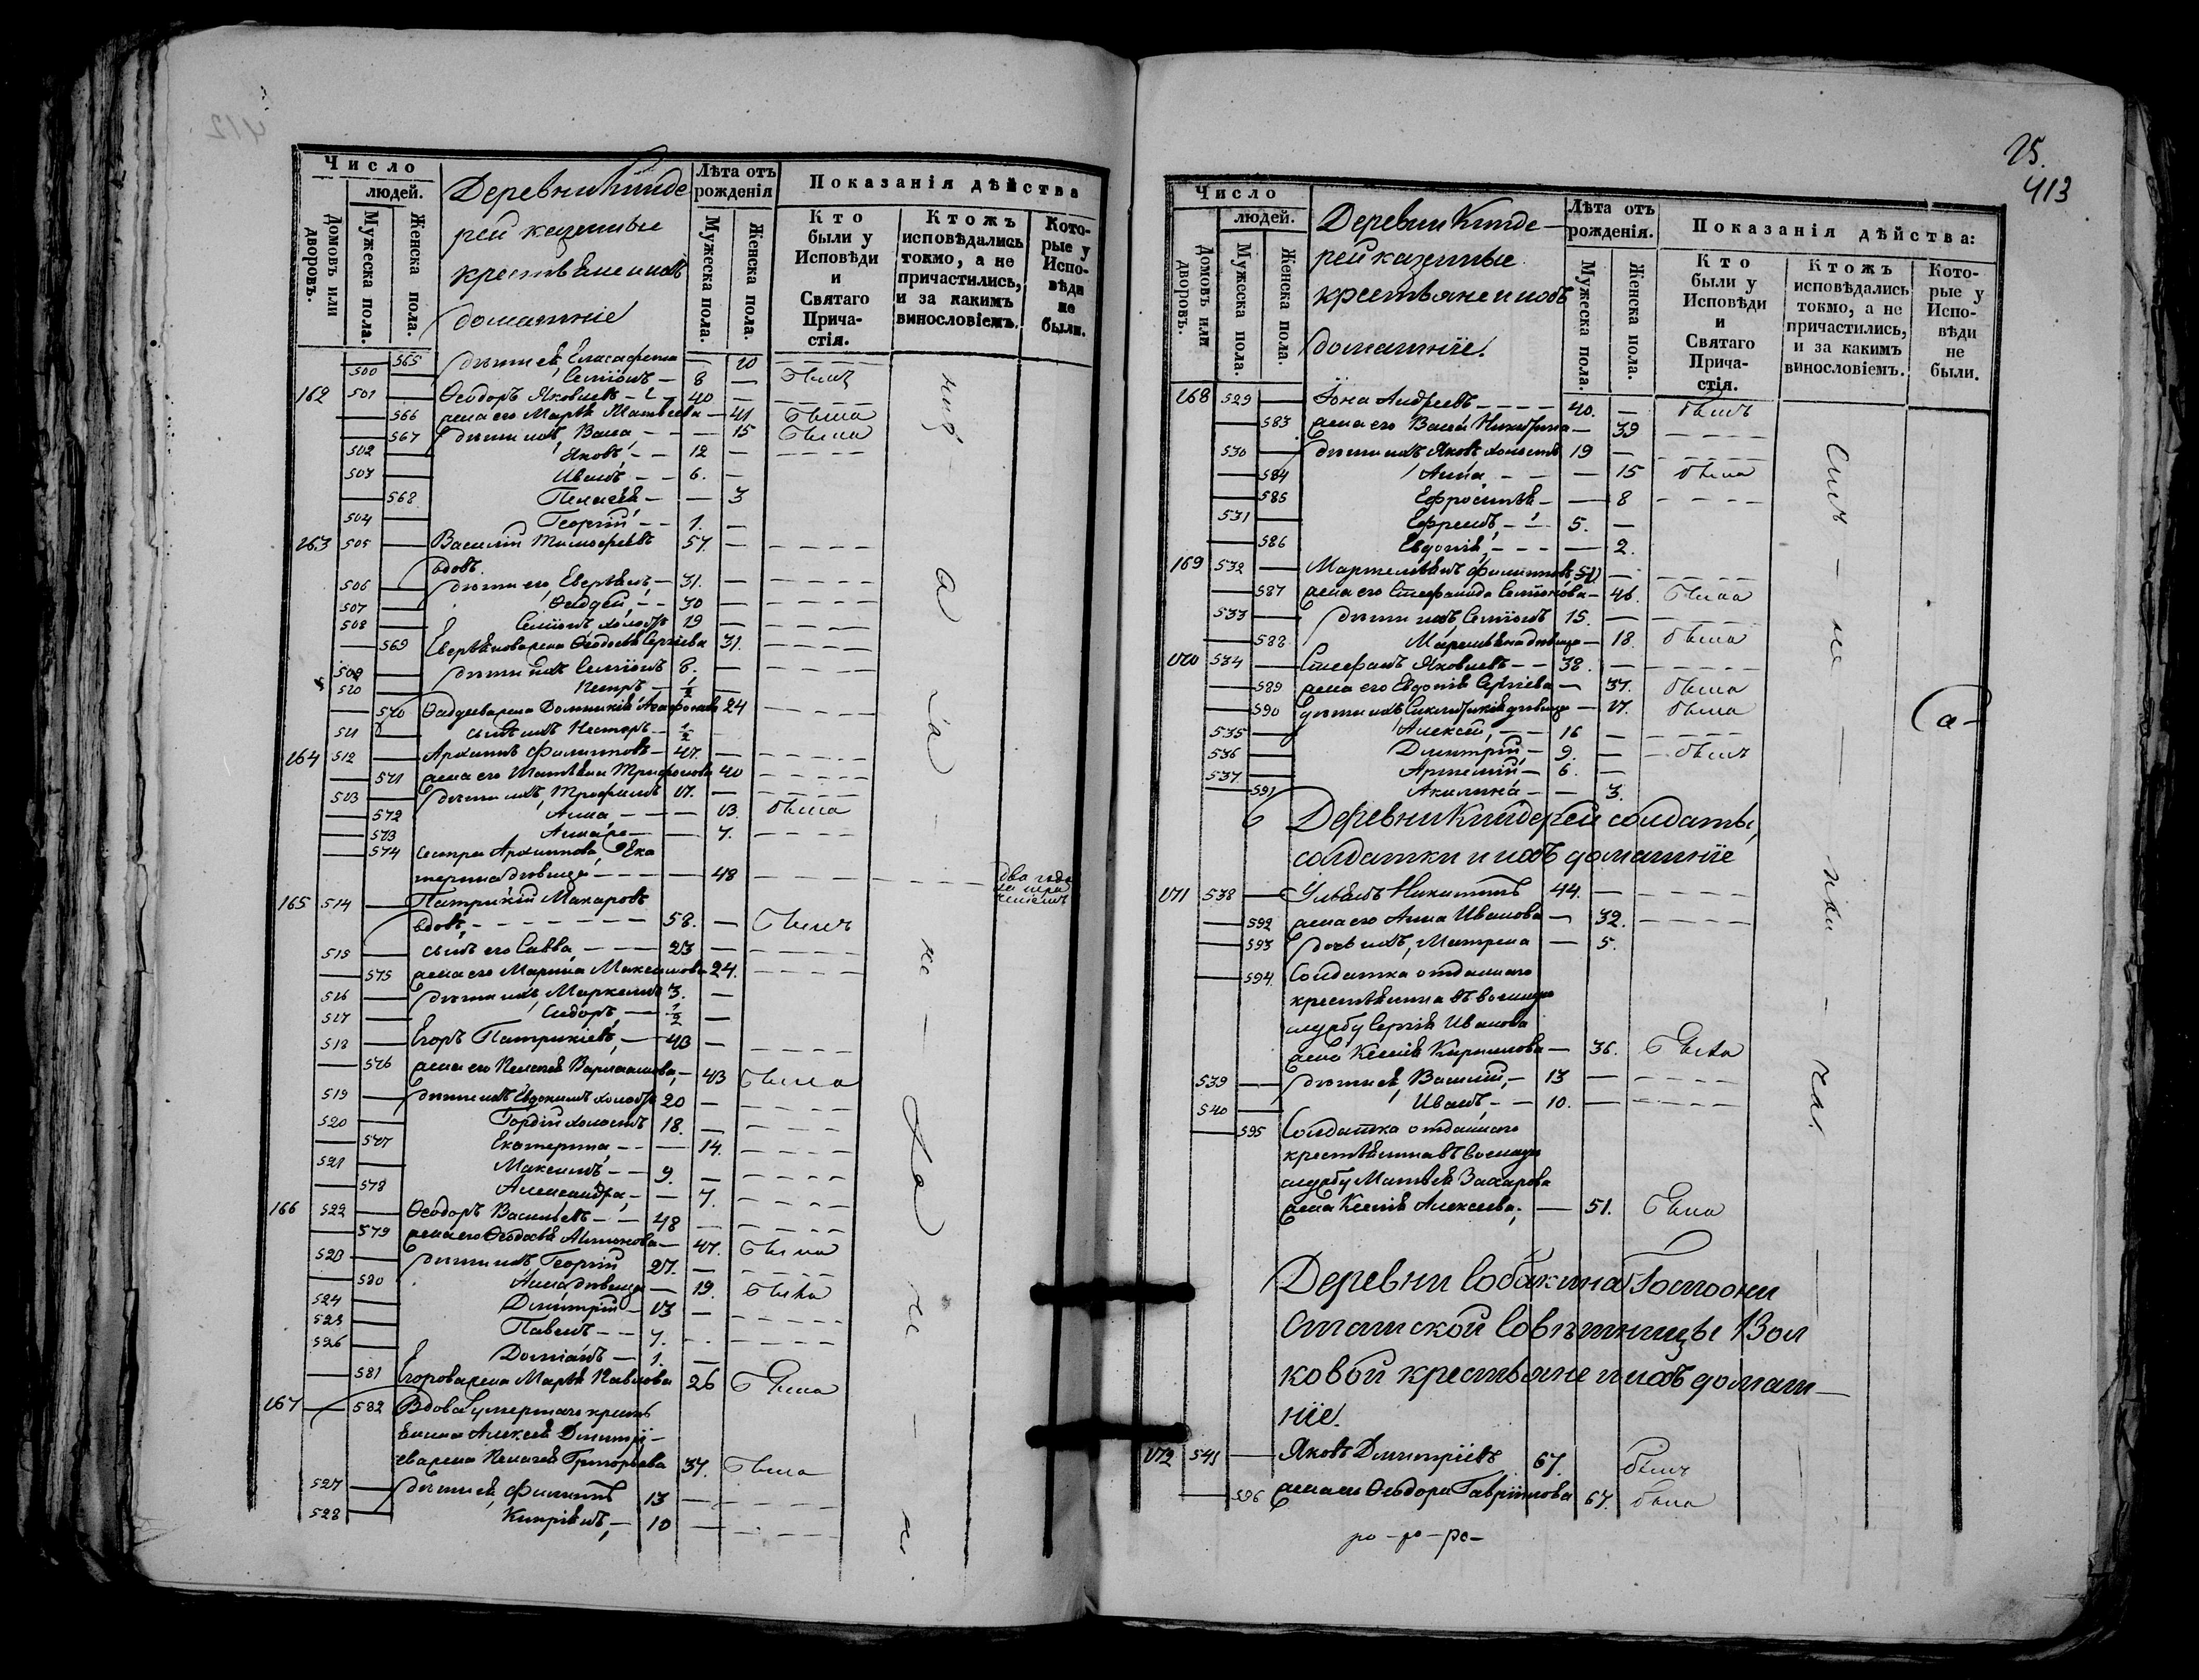 412
Число
людей.
Домовъ или дворовъ.
Мужеска пола.
Женска пола.
Деревни Кинде
рей казенные
крестьяне и ихъ
домашніе
Лѣта отъ рожденія
Мужеска пола.
Женска пола.
Показанія дѣйства
Кто были у Исповѣди и Святаго Причастія.
Ктожъ исповѣдались токмо, а не причастились, и за какимъ винословіемъ.
Которые у Исповѣди не были.
565 дѣти ея, 20
500 Семіонъ 8 былъ
162 501 Ѳеодоръ Яковлевъ 40
566 жена его Марѳа Матвеева 41 была
567 дѣти ихъ, Васса 15 была
502 Яковъ 12
503 Иванъ 6.
568 Пелагея 3
504 Георгій 1.
163 505 Василій Тимофеевъ 57.
вдовъ.
506 дѣти его, 31.
507 Ѳаддей, 30
508 Семіонъ холостъ 19
569 жена Ѳеодосья Сергіева 31.
509 дѣти ихъ Семіонъ 8.
510 Петръ ½
570 Ѳаддеева жена Домникія Агафонова 24
511 сынъ ихъ Несторъ ½
164 512 Архиппъ Филипповъ 47.
571 жена его Татьяна Трифонова 40
513 дѣти ихъ, Трофимъ 17.
572 Анна 13. была
573 7.
574 сестра Архиппова, Ека
терина дѣвица 48 два года
165 514 Патрикій Макаровъ
вдовъ, 58. былъ
515 сынъ его Савва, 23
575 жена его Марина Максимова 24.
516 дѣти ихъ, Маркеллъ 3.
517 Сидоръ, ½
518 Егоръ Патрикіевъ, 43
576 жена его Пелагея Варлаамова, 43 была
519 дѣти ихъ Евдокимъ холостъ 20
520 Гордій холостъ 18.
577 Екатерина 14.
521 Максимъ 9.
578 Александра, 7.
166 522 Ѳеодоръ Васильевъ 48
579 жена его Ѳеодосья Антонова 47. была
523 дѣти ихъ, Георгій 27.
580 Анна дѣвица 19. была
524 Димитрій 13
525 Павелъ 7.
526 Доміанъ 1.
581 Егорова жена Марѳа Павлова 26 была
167 582 Вдова умершаго кресть
янина Алексея Димитрі
ева жена Пелагея Григорьева 37. была
527 дѣти ея, Филиппъ 13
528 Кипріанъ, 10
25.
413
Число
людей.
Домовъ или дворовъ.
Мужеска пола.
Женска пола.
Деревни Кинде
рей казенные
крестьяне и ихъ
домашніе.
Лѣта отъ рожденія.
Мужеска пола.
Женска пола.
Показанія дѣйства:
Кто были у Исповѣди и Святаго Причастія.
Ктожъ исповѣдались токмо, а не причастились, и за какимъ винословіемъ.
Которые у Исповѣди не были.
168 529 Іона Андреевъ 40. былъ
583 жена его Васса Никитина 39
530 дѣти ихъ Яковъ холостъ 19
584 Анна 15 была
585 Ефросинья 8
531 Ефремъ, 5.
586 Евдокія, 2.
169 532 Мартеміанъ Филипповъ 50
587 жена его Степанида Семіонова 46. была
533 дѣти ихъ Семіонъ 15.
588 Маремьяна дѣвица 18. была
170 534 Стефанъ Яковлевъ 38.
589 жена его Евдокія Сергіева 37. была
590 дѣти ихъ Синклитикія дѣвица 17. была
535 Алексей, 16
536 Димитрій 9. былъ
537 Артемій 6.
591 Акилина 3.
Деревни Киндерей солдаты,
солдатки и ихъ домашніе
171 538 Ульянъ Никитинъ 44.
592 жена его Анна Иванова 32.
593 дочь ихъ, Матрена 5.
594. Солдатка отданнаго
крестьянина въ военную
службу Сергія Иванова
жена Ксенія Кириллова 36. была
539 дѣти ея, Василій, 13
540 Иванъ, 10.
595 Солдатка отданнаго
крестьянина въ военную
службу Матвея Захарова
жена Ксенія Алексеева, 51. была
Деревни Собакина Госпожи
Статской Совѣтницы Вол
ковой крестьяне и ихъ домаш
ніе.
172 541 Яковъ Димитріевъ 67. былъ
596 жена его Ѳеодора Гавріилова 67. была